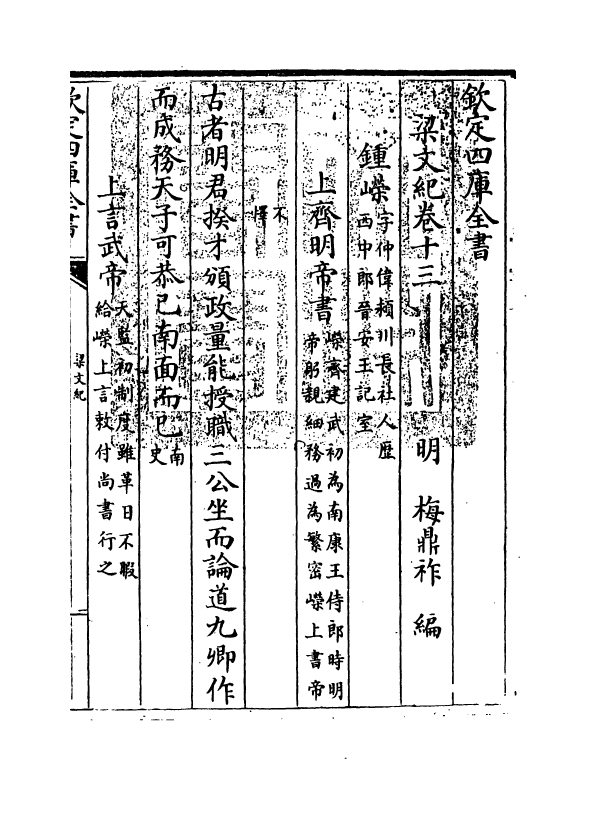 欽定四庫全書
梁文紀卷十三　明　梅鼎祚　編
鍾嶸字仲偉潁川長社人歴
西中郎晉安王記室
上齊明帝書嶸齊建武初為南康王侍郎時明
帝躬親細務過為繁密嶸上書帝
不
懌
古者明君揆才頒政量能授職三公坐而論道九卿作
而成務天子可恭已南面而已南
史
上言武帝天監初制度雖革日不暇
給嶸上言敕付尚書行之
欽定四庫全書
梁文紀